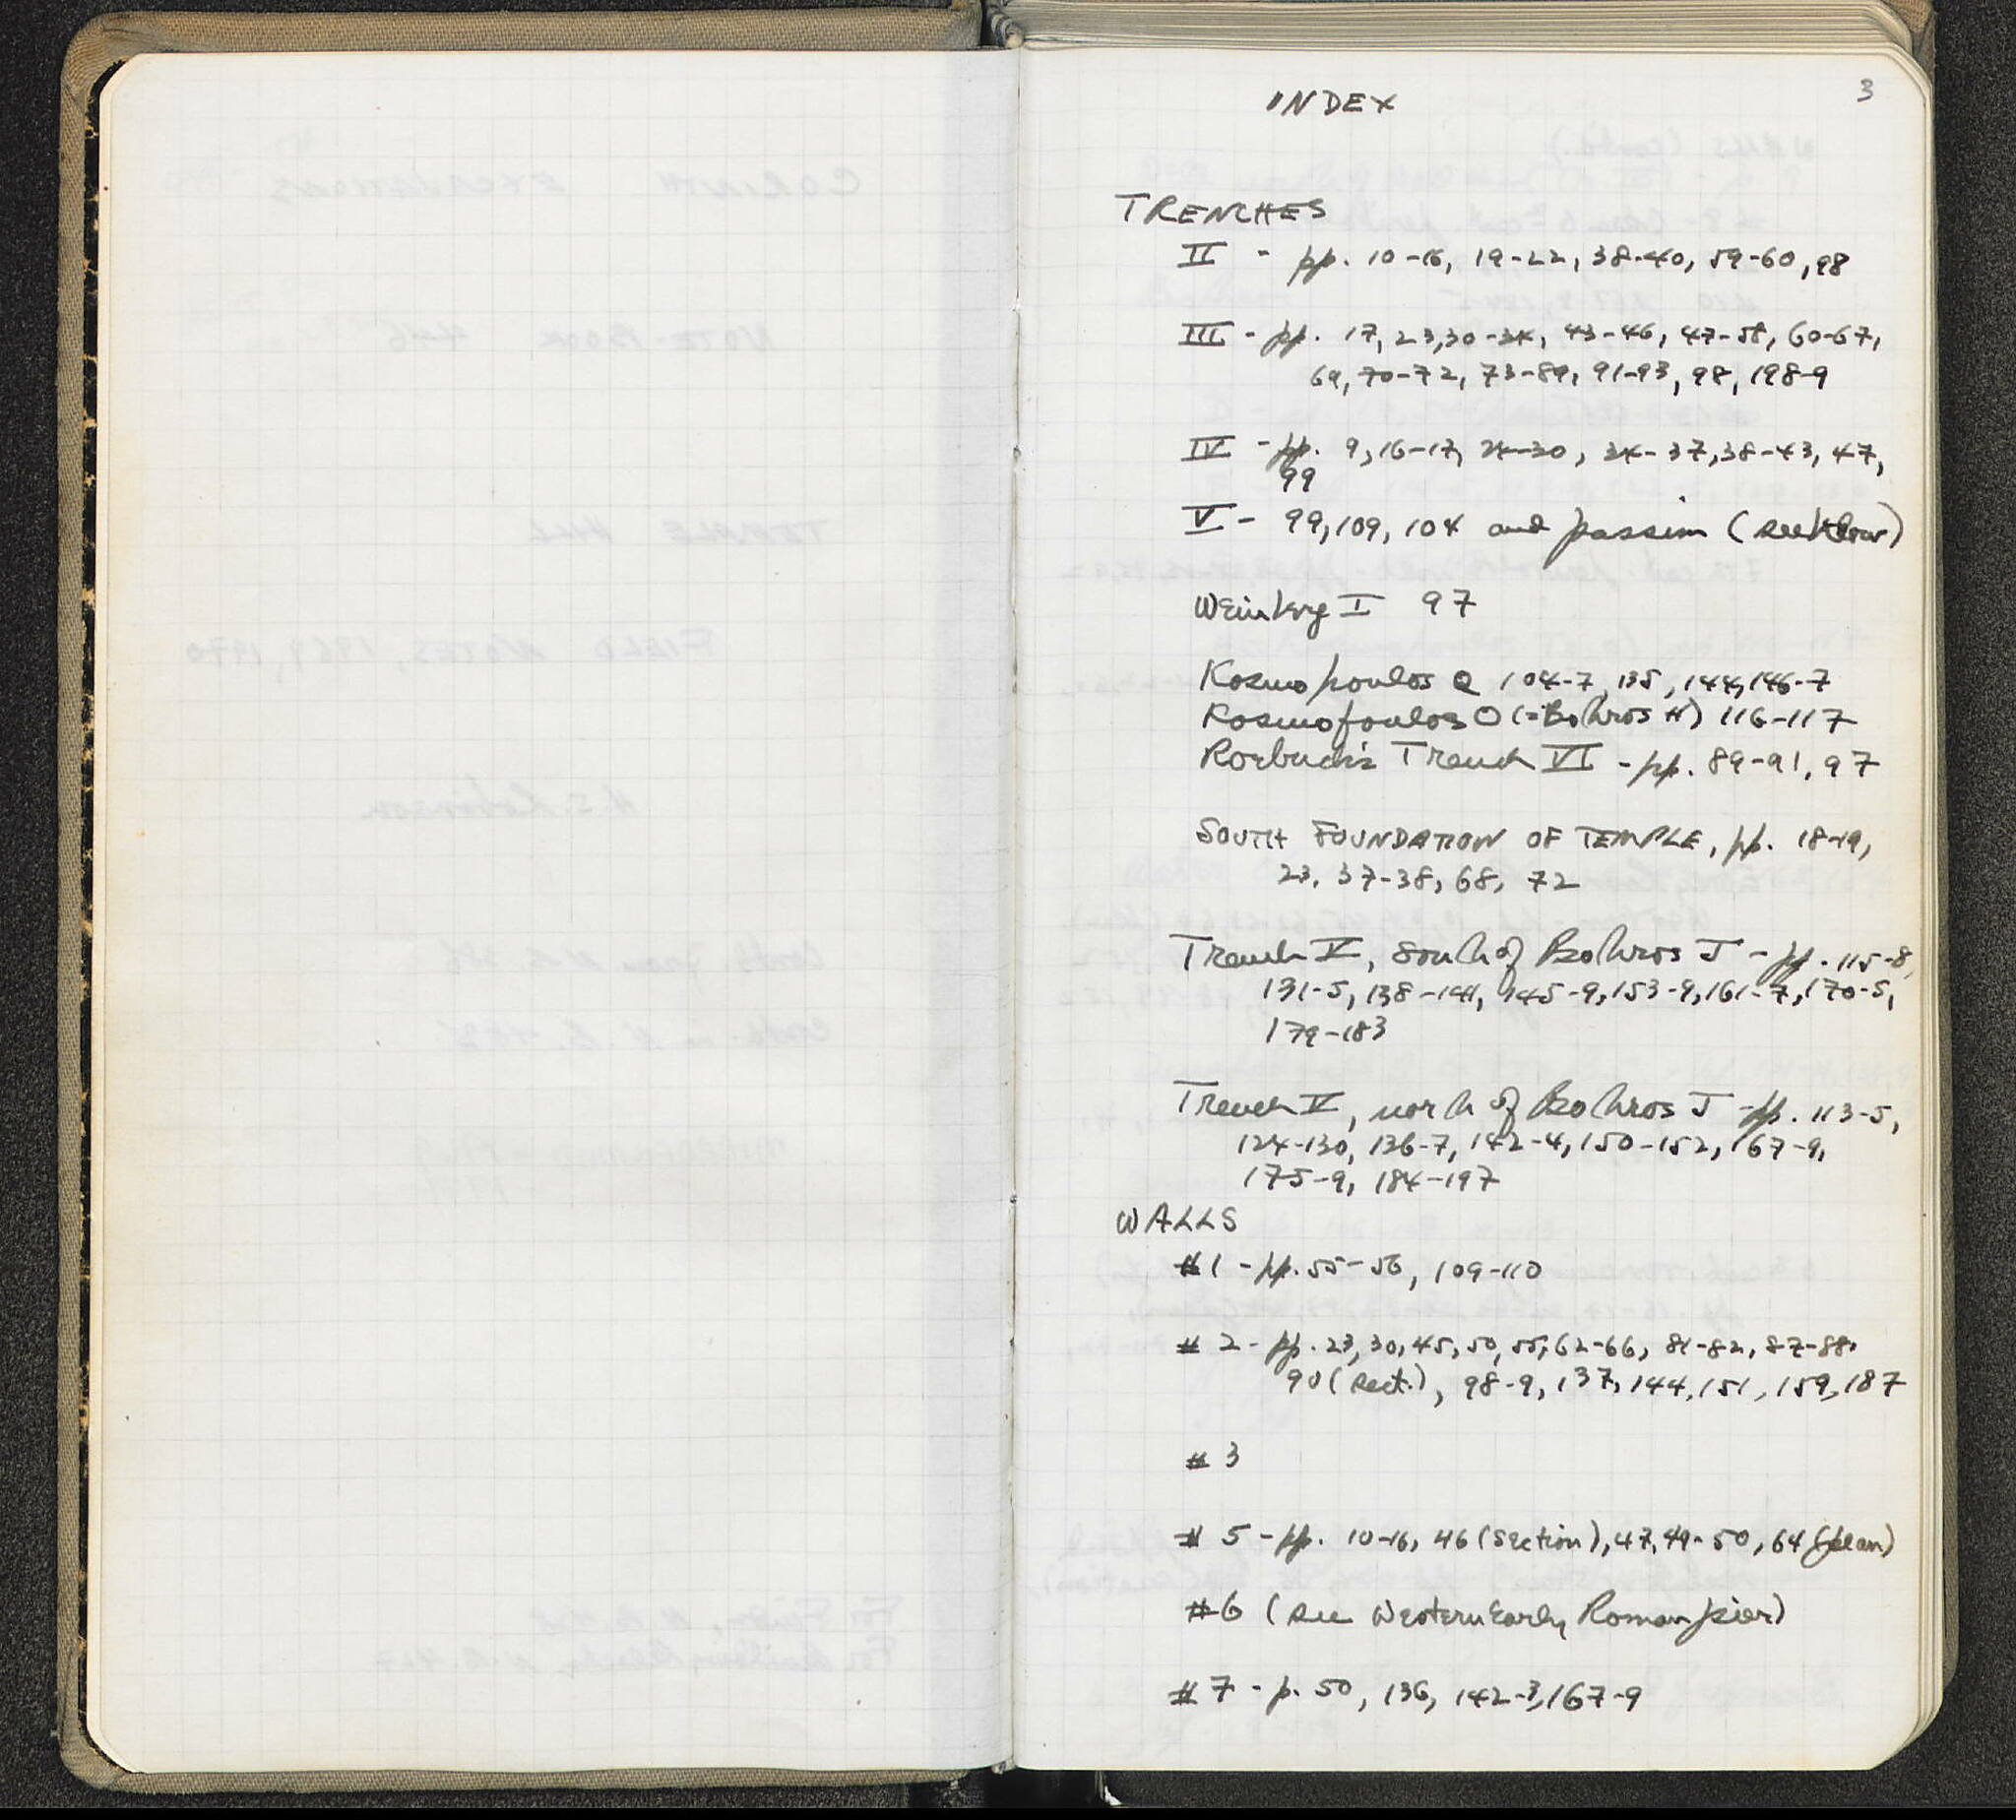 3
INDEX
TRENCHES
II - pp. 10-16, 19-22, 38-40, 59-60, 98
III - pp. 17, 23, 30-34, 43-46, 47-58, 60-67,
69, 70-72, 73-89, 91-93, 98, 198-9
IV - pp. 9, 16-17, 24-30, 34-37, 38-43, 47,
99
V - 99, 109, 104 and passim (see below)
Weinberg I 97
Kosmopoulos Q 104-7, 135, 144, 146-7
Kosmopoulos O (= Bothros H) 116-117
Roebuck's Trench VI - pp. 89-91, 97
SOUTH FOUNDATION OF TEMPLE, pp. 18-19,
23, 37-38, 68, 72
Trench V, south of Bothros J - pp. 115-8,
131-5, 138-141, 145-9, 153-9, 161-7, 170-5,
179-183
Trench V, north of Bothros J - pp. 113-5,
124-130, 136-7, 142-4, 150-152, 167-9,
175-9, 184-197
WALLS
#1 - pp. 55-56, 109-110
# 2 - pp. 23, 30, 45, 50, 55, 62-66, 81-82, 87-88,
90 (sect.), 98-9, 137, 144, 151, 159, 187
# 3
# 5 - pp. 10-16, 46 (section), 47, 49-50, 64 (plan)
#6 (see Western Early Roman pier)
# 7 - p. 50, 136, 142-3, 167-9